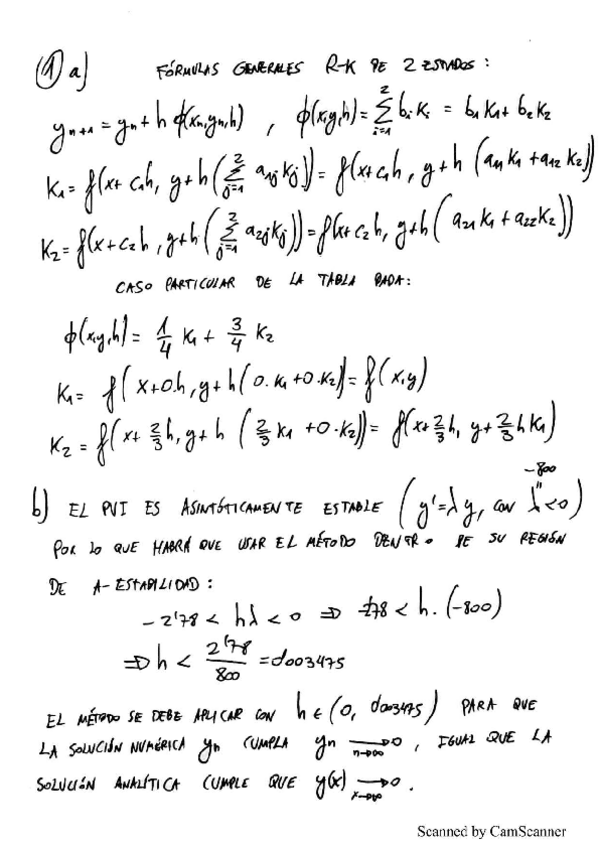 ① a) FÓRMULAS GENERALES R-K DE 2 ESTADOS:
y_{n+1} = y_n + h ϕ(x_n, y_n, h) , ϕ(x,y,h) = ∑_{i=1}^{2} b_i k_i = b_1 K_1 + b_2 K_2
K_1 = f(x + c_1 h, y + h (∑_{j=1}^{2} a_{1j} k_j)) = f(x + c_1 h, y + h (a_{11} K_1 + a_{12} K_2))
K_2 = f(x + c_2 h, y + h (∑_{j=1}^{2} a_{2j} k_j)) = f(x + c_2 h, y + h (a_{21} K_1 + a_{22} K_2))
CASO PARTICULAR DE LA TABLA DADA:
ϕ(x,y,h) = 1/4 K_1 + 3/4 K_2
K_1 = f(x + 0·h, y + h (0·K_1 + 0·K_2)) = f(x,y)
K_2 = f(x + 2/3 h, y + h (2/3 K_1 + 0·K_2)) = f(x + 2/3 h, y + 2/3 h K_1)
-800
b) EL PVI ES ASINTÓTICAMENTE ESTABLE (y' = λ y, CON λ < 0)
POR LO QUE HABRÁ QUE USAR EL MÉTODO DENTRO DE SU REGIÓN
DE A-ESTABILIDAD:
-2'78 < hλ < 0 ⇒ -2'78 < h·(-800)
⇒ h < 2'78/800 = 0'003475
EL MÉTODO SE DEBE APLICAR CON h ∈ (0, 0'003475) PARA QUE
LA SOLUCIÓN NUMÉRICA y_n CUMPLA y_n ⟶_{n→∞} 0 , IGUAL QUE LA
SOLUCIÓN ANALÍTICA CUMPLE QUE y(x) ⟶_{x→∞} 0 .
Scanned by CamScanner